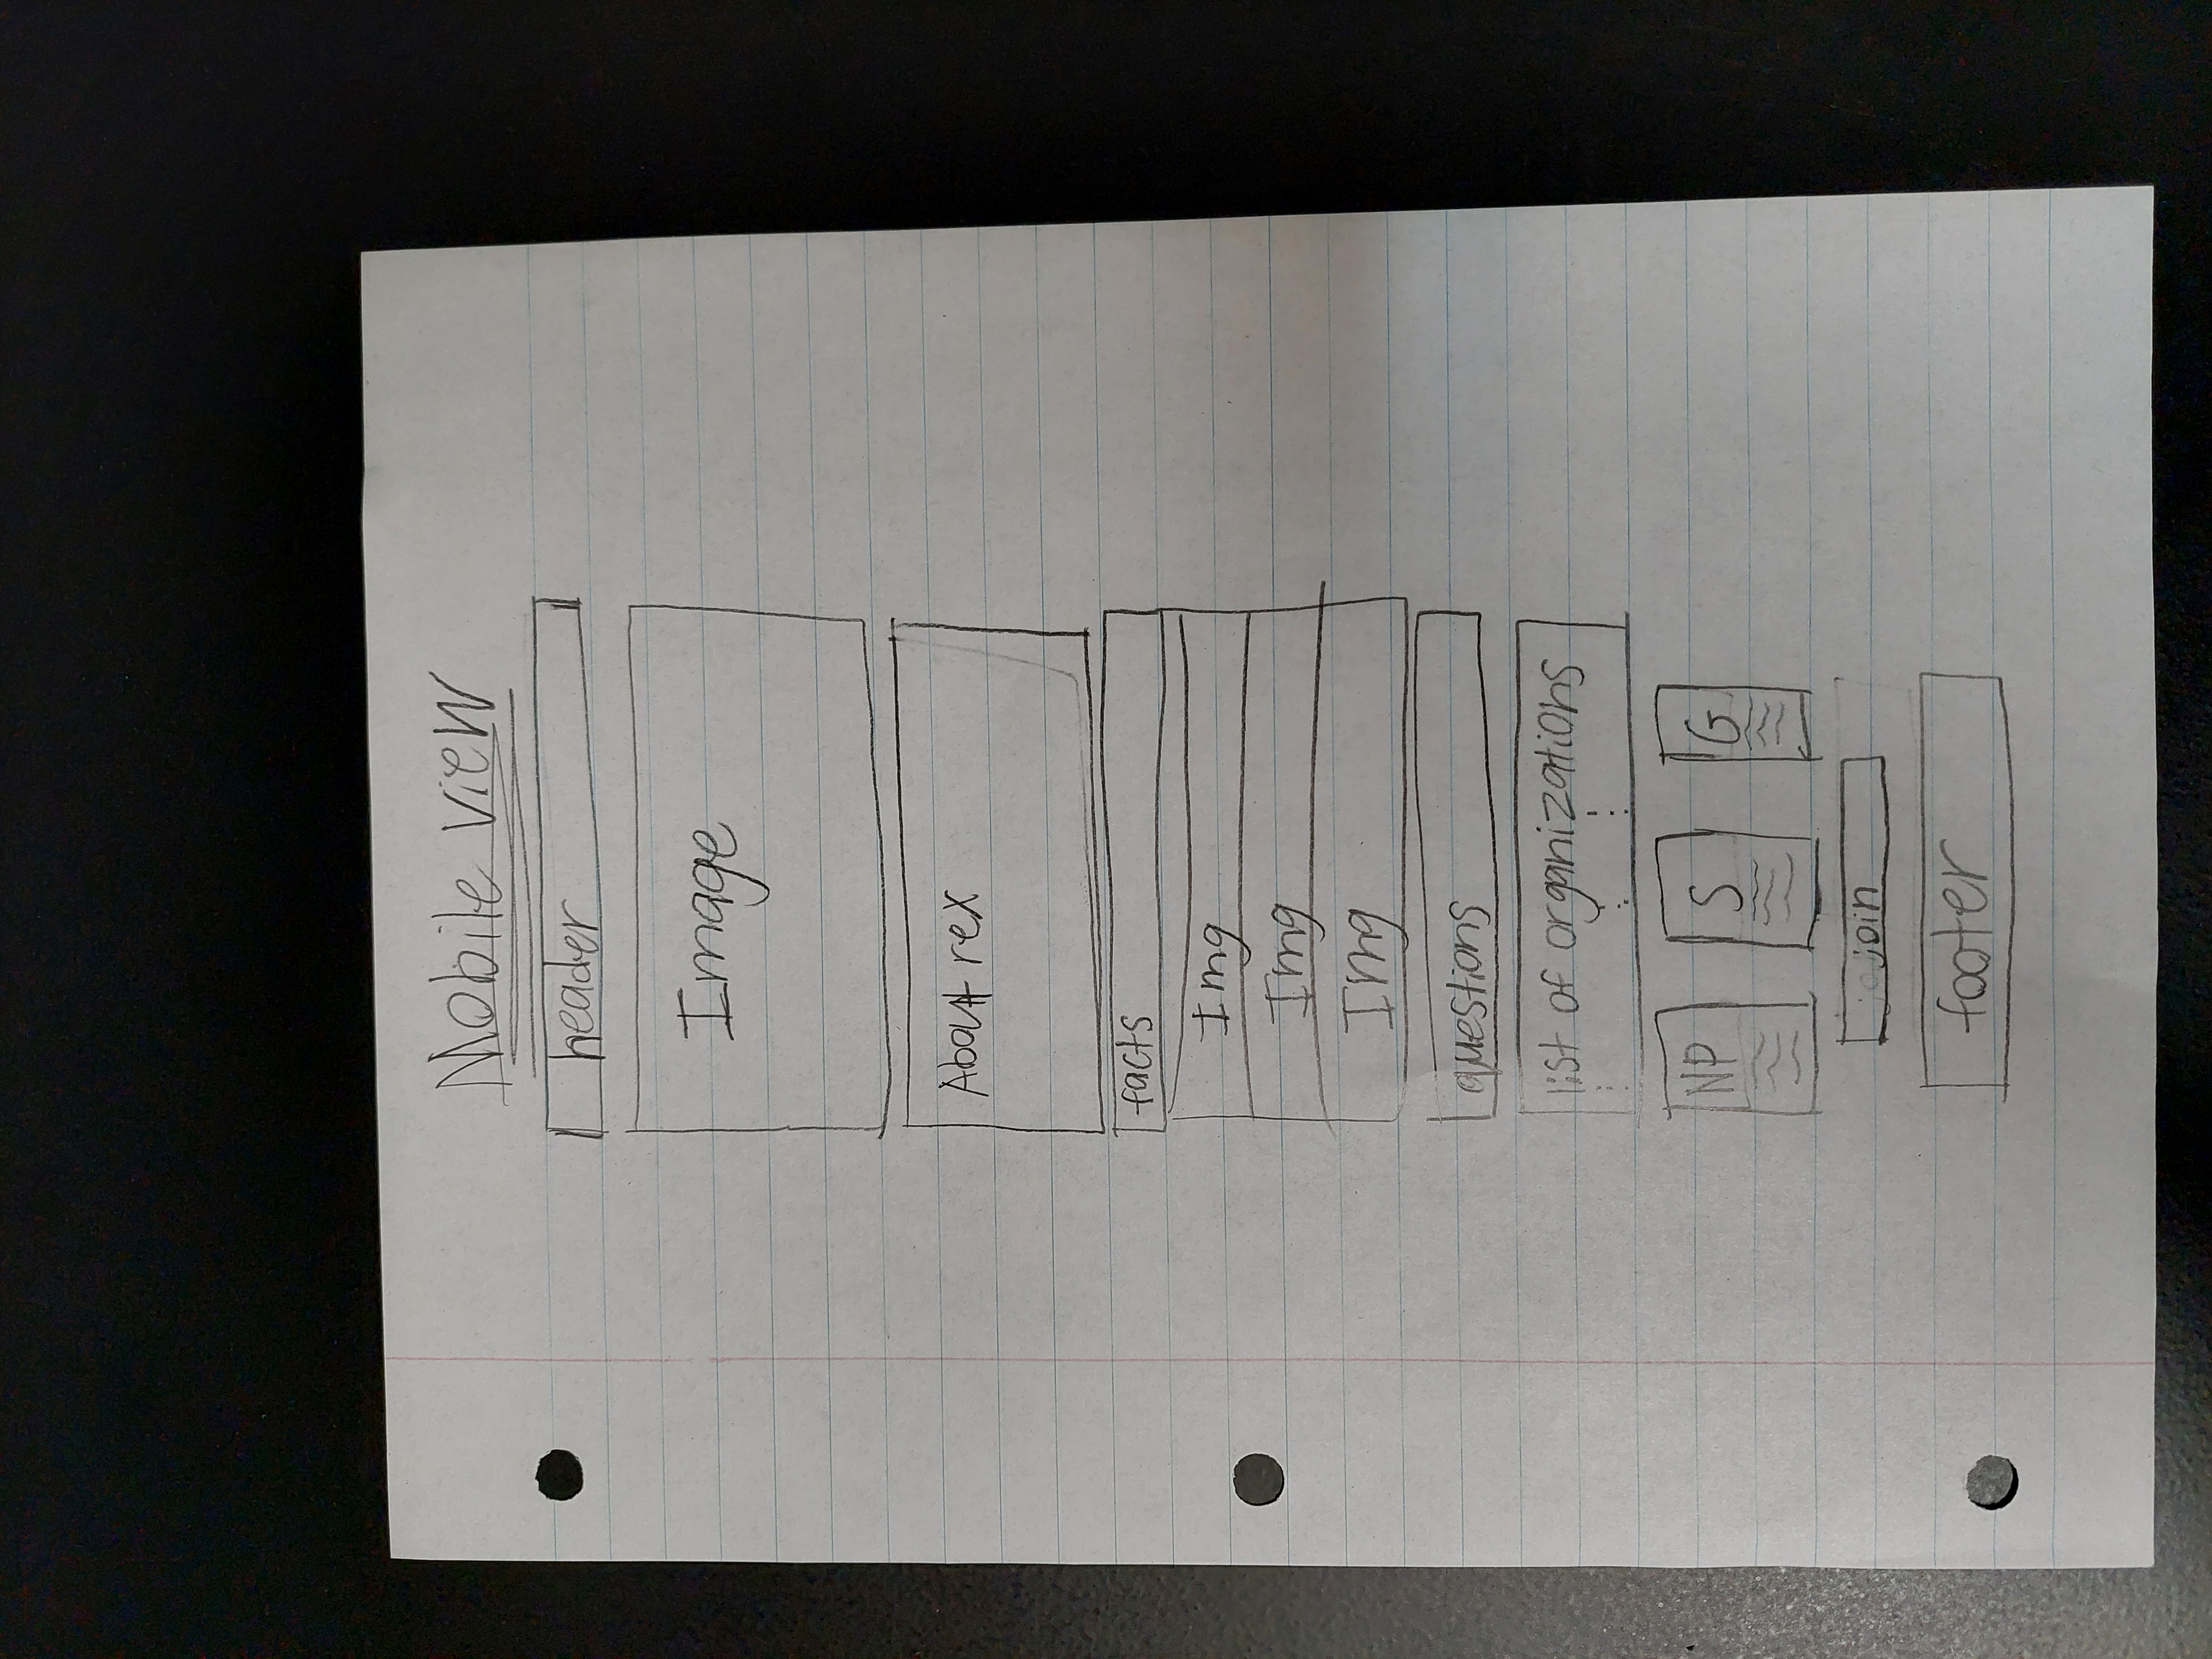 Mobile view
header
Image
About rex
facts
Img
Img
Img
questions
list of organizations
NP S G
join
footer